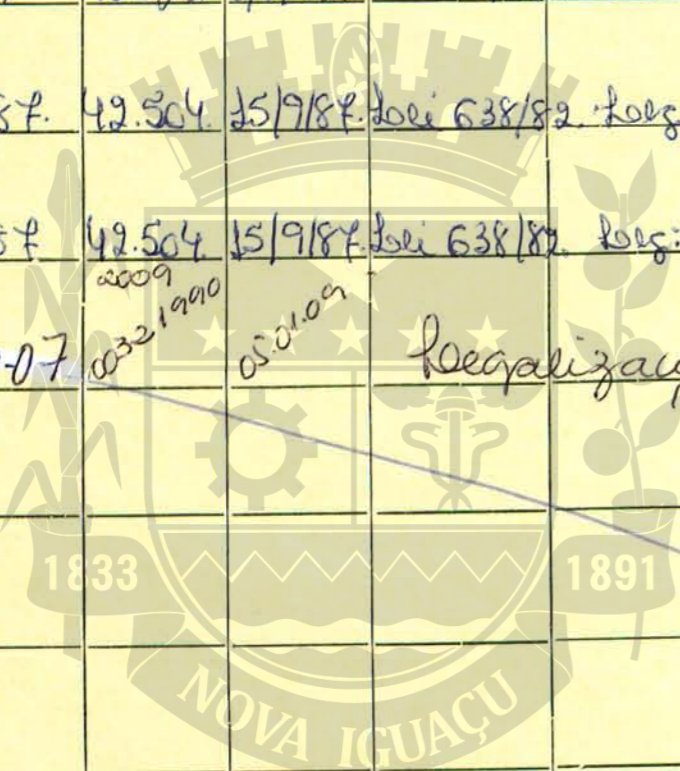 87. 42.504. 15/9/87. Lei 638/82. Leg
87 42.504. 15/9/87. Lei 638/82. Leg:
2009
-07 00321990 05.01.09 Legalizaç
1833 1891
NOVA IGUAÇU